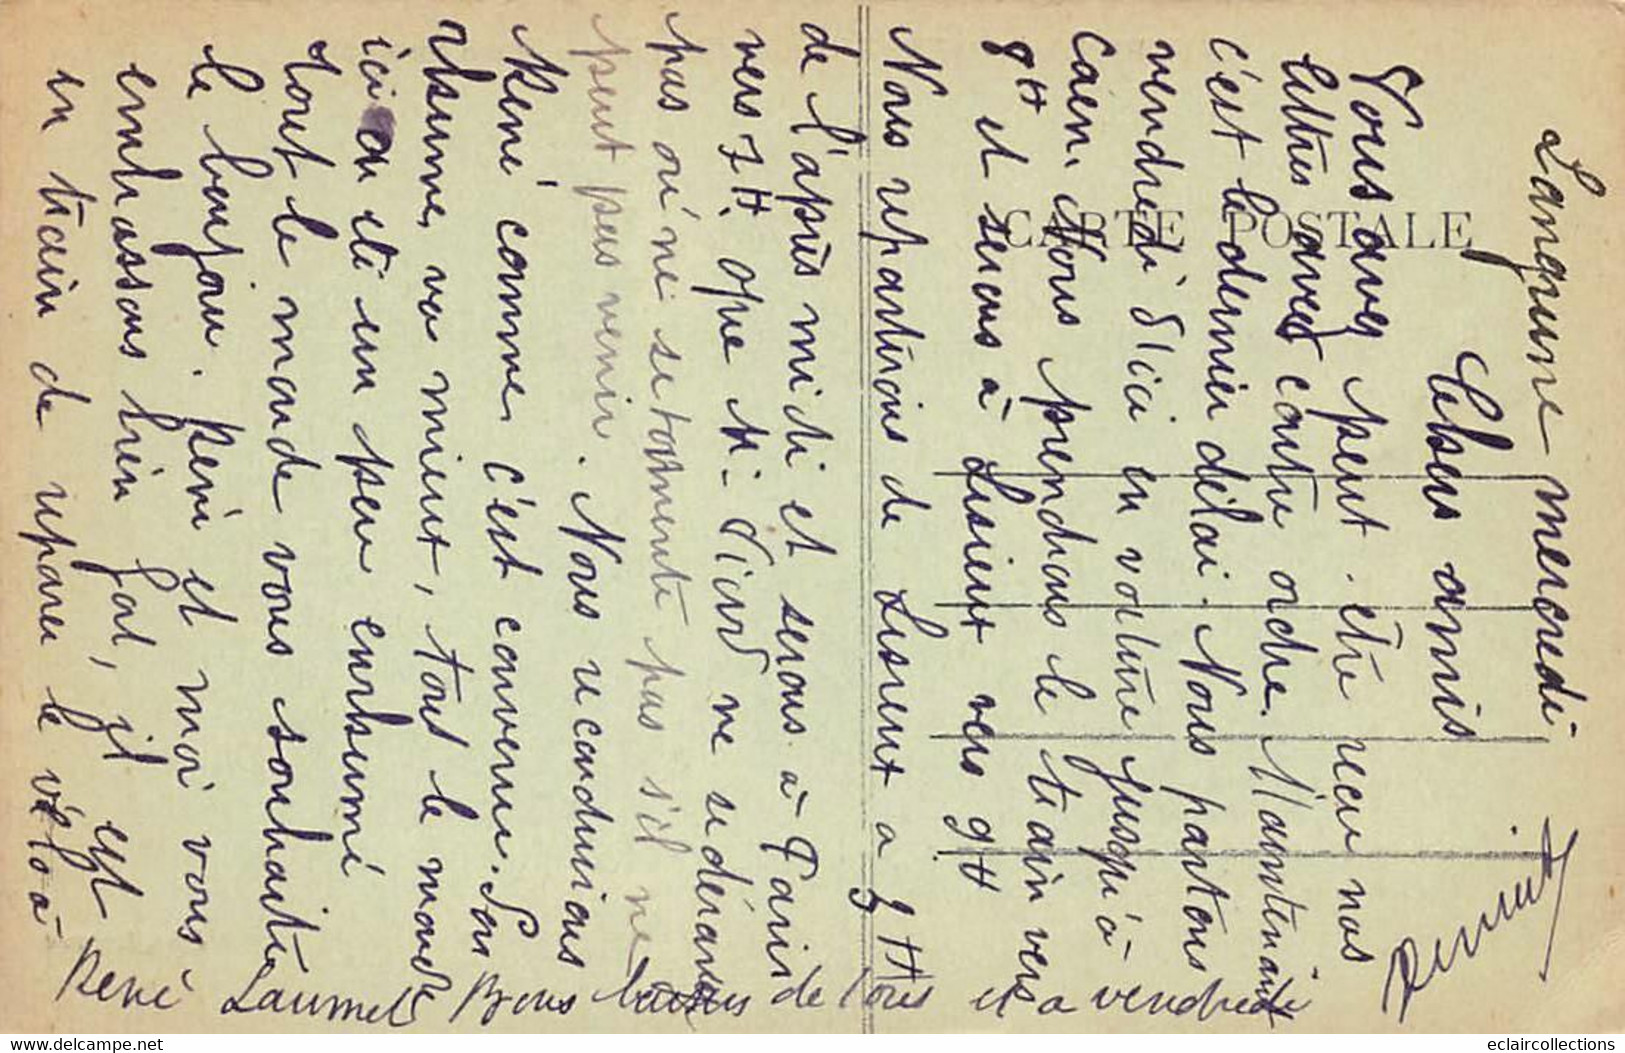 Langrune mercredi
Chers amis
Vous avez peut être recu nos
lettres avec contre ordre. Maintenant
c'est le dernier délai. Nous partons
vendredi d'ici en voiture jusqu'à
Caen. Nous prendrons le train vers
9H et serons à Lisieux vers 9H
Nous repartirons de Lisieux a 3H
de l'après midi et serons à Paris
vers 7H. Que M. Picard ne se dérange
pas où ne se tormente pas s'il ne
peut pas venir. Nous reconduirons
René comme c'est convenu. Son
rhume va mieux, tout le monde
ici a été un peu enrhumé
Tout le monde vous souhaite
le bonjour. René et moi vous
embrassons bien fort, il est
en train de réparer le vélo à
René Laumel Bons baisers de tous et a vendredi
CARTE POSTALE
eclaircollections